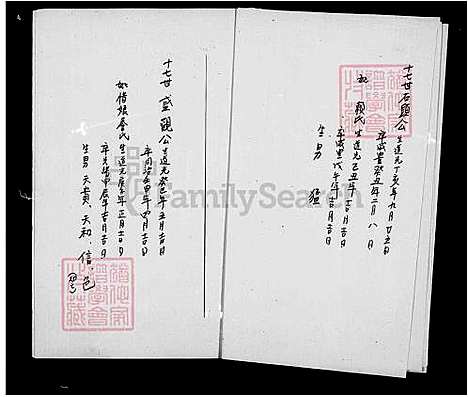 十七世石頭公生道光丁亥年九月廿五日
卒咸豐癸丑年二月八日
妣賴氏生道光己丑年吉月吉日
卒咸豐戊午年吉月吉日
生男 猛
十七世 盛觀公生道光癸巳年五月吉日
卒同治甲年四月吉日
妣惜娘詹氏生道光庚子年正月十一日
卒光緒甲辰年吉月吉日
生男 天貴、天初、信、邑
FamilySearch